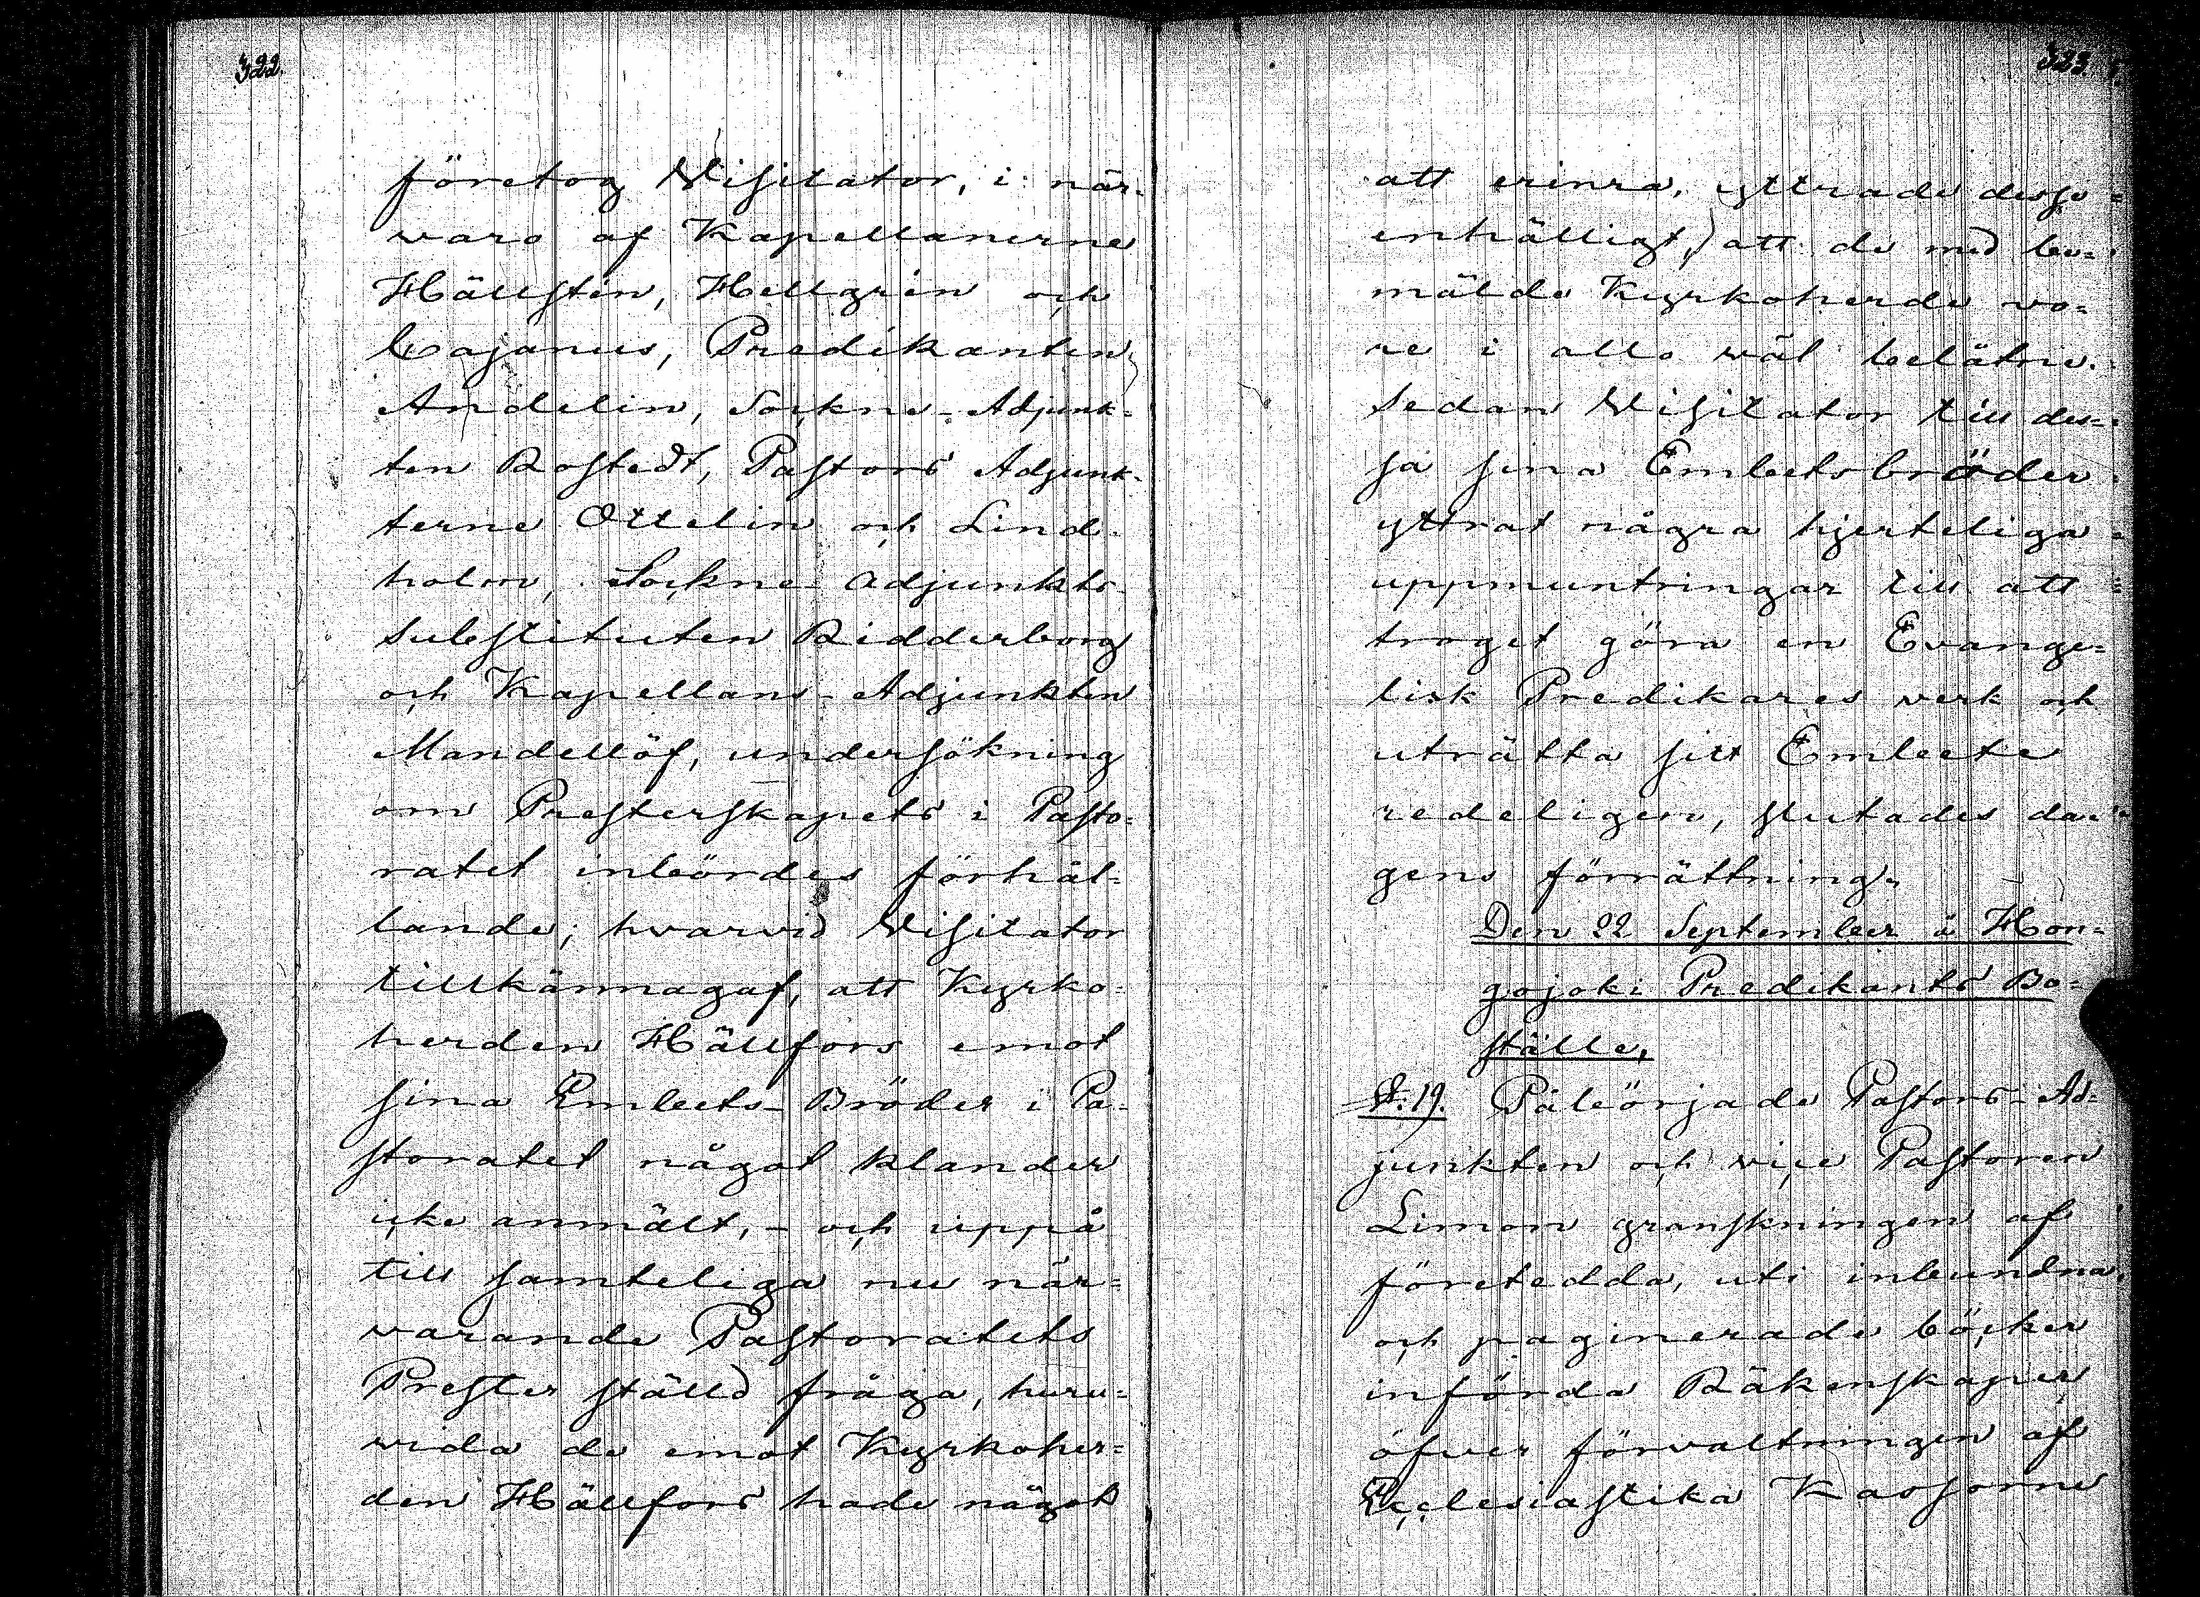 322.
företog Visitator, i när-
waro af Kapellanerne
Hällstén, Hellgrén och
Cajanus, Predikanten
Andelin, Sockne-Adjunk-
ten Rostedt, Pastors Adjunk-
terne Ottelin och Lind-
holm, Sockne Adjunkts-
substituten Ridderborg
och Kapellans-Adjunkten
Mandellöf, undersökning
om Presterskapets i Pasto-
ratet inbördes förhål-
lande; hvarvid Visitator
tillkännagaf, att Kyrko-
herden Hällfors emot
sina Embets-Bröder i Pa-
storatet något klander
icke anmält, - och uppå
till samteliga nu när-
varande Pastoratets
Prester ställd fråga, huru-
wida de emot Kyrkoher-
den Hällfors hade något
323.
att erinra, yttrade desse
enhälligt, att de med be-
mälde Kyrkoherde wo-
re i allo wäl belåtne.
Sedan Visitator till des-
sa sina Embetsbröder
yttrat några hjerteliga
uppmuntringar till att
troget göra en Evange-
lisk Predikares verk och
uträtta sitt Embete
redeligen, slutades da-
gens förrättning.
Den 22 September å Hon-
gojoki Predikants Bo-
ställe,
§. 19. Påbörjade Pastors-Ad-
junkten och vice Pastoren
Limon granskningen af
företedda, uti inbundna
och paginerade böcker
införda Räkenskaper
öfver förvaltningen af
Ecclesiastika Kassorne